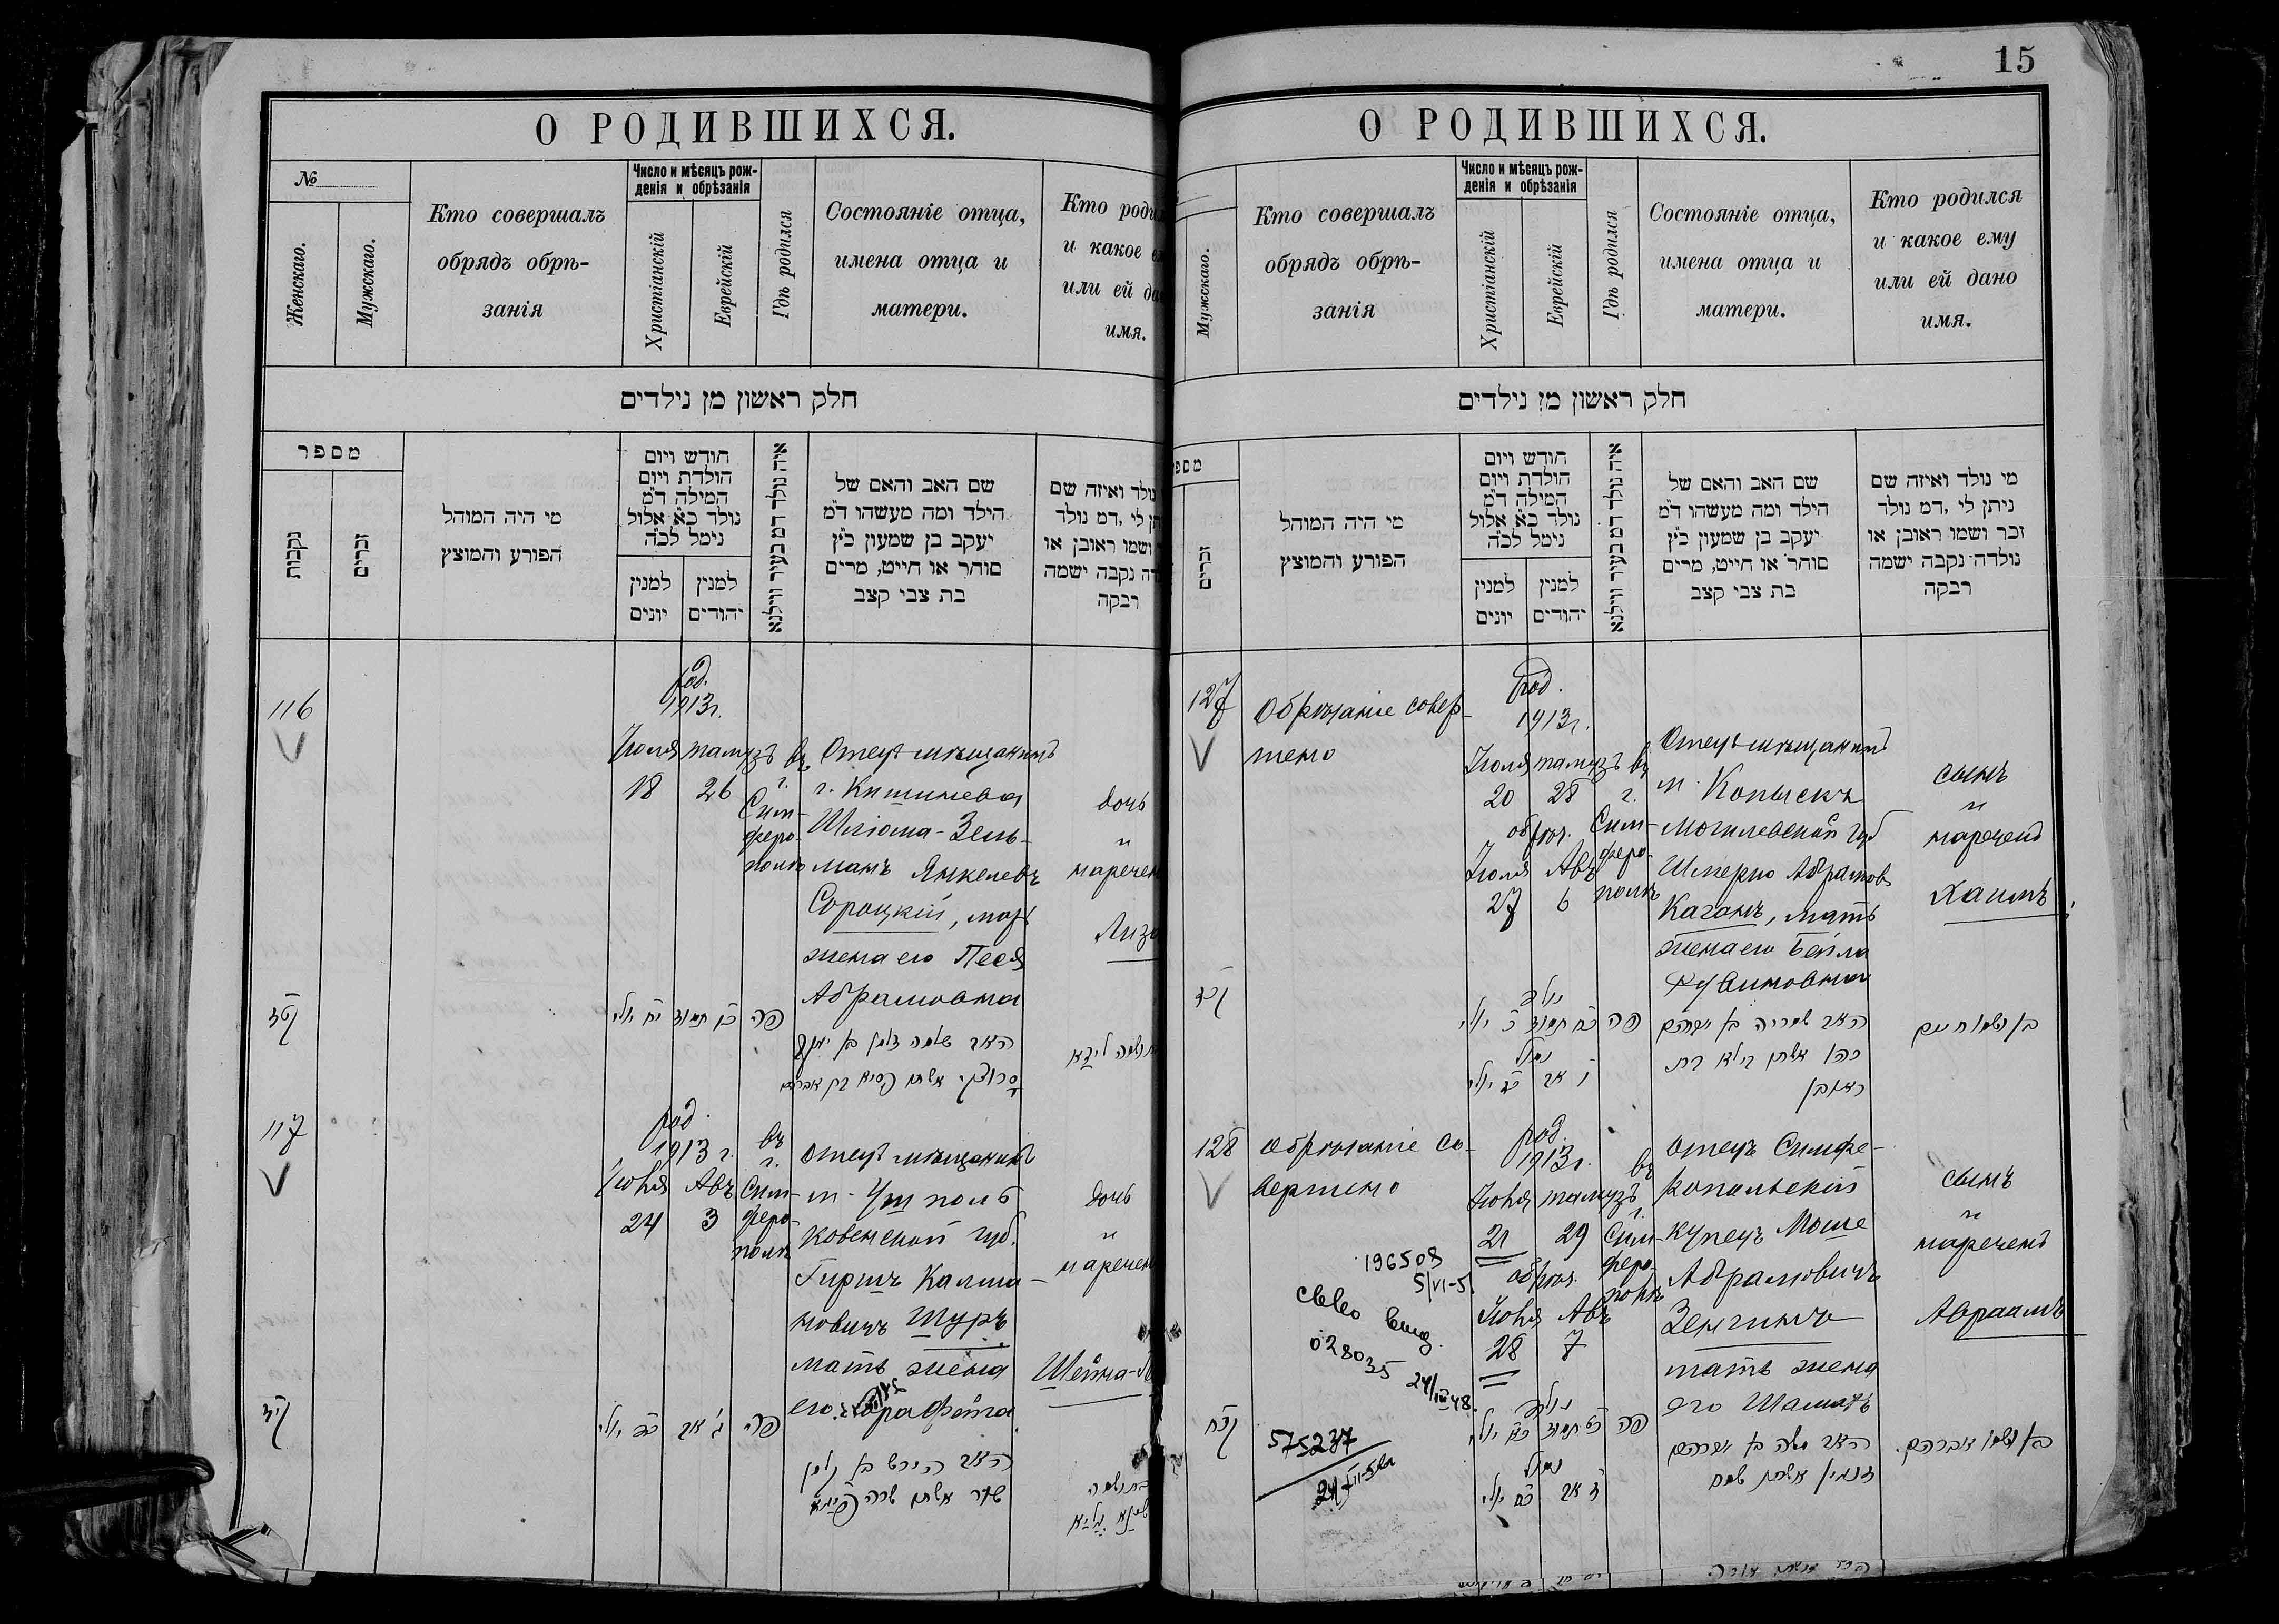 О РОДИВШИХСЯ.
№
Женскаго.
Мужскаго.
Кто совершалъ
обрядъ обрѣ-
занія
Число и мѣсяцъ рож-
денія и обрѣзанія
Христіанскій
Еврейскій
Гдѣ родился
Состояніе отца,
имена отца и
матери.
Кто роди
и какое е
или ей да
имя.
חלק ראשון מן נילדים
מספר
נקבות
זכרים
מי היה המוהל
הפורע והמוצץ
חודש ויום
הולדת ויום
המילה ד״מ
נולד כ״א אלול
נימל לכ״ה
למנין
יונים
למנין
יהודים
איה נולד דמ בעיר ווילנא
שם האב והאם של
הילד ומה מעשהו ד״מ
יעקב בן שמעון כ״ץ
סוחר או חייט, מרים
בת צבי קצב
נולד ואיזה שם
תן לי, דמ נולד
ושמו ראובן או
דה נקבה ישמה
רבקה
116
род.
1913 г.
Июля тамузъ въ
18 26 г.
Сим-
феро-
полѣ
Отецъ мѣщанинъ
г. Кишинева
Шлiома-Зель-
манъ Янкелевъ
Сороцкій, мать
жена его Песя
Абрамовна
дочь
и
наречен
Лиза
פה
האב שלמה זלמן בן יעקב
117
род.
1913 г. въ
г.
Июля Авъ Сим-
24 3 феро-
полѣ
Отецъ мѣщанинъ
м. Уш поль
Ковенской губ.
Гиршъ Калма-
новичъ Шуръ
мать жена
его
дочь
и
наречен
Шейна-
פה
האב הירש בן קלמן
15
О РОДИВШИХСЯ.
Мужскаго.
Кто совершалъ
обрядъ обрѣ-
занія
Число и мѣсяцъ рож-
денія и обрѣзанія
Христіанскій
Еврейскій
Гдѣ родился
Состояніе отца,
имена отца и
матери.
Кто родился
и какое ему
или ей дано
имя.
חלק ראשון מן נילדים
מספ
זכרים
מי היה המוהל
הפורע והמוצץ
חודש ויום
הולדת ויום
המילה ד״מ
נולד כ״א אלול
נימל לכ״ה
למנין
יונים
למנין
יהודים
איה נולד דמ בעיר ווילנא
שם האב והאם של
הילד ומה מעשהו ד״מ
יעקב בן שמעון כ״ץ
סוחר או חייט, מרים
בת צבי קצב
מי נולד ואיזה שם
ניתן לי, דמ נולד
זכר ושמו ראובן או
נולדה נקבה ישמה
רבקה
127
Обрѣзаніе совер-
шено
род.
1913 г.
Июля тамузъ въ
20 28 г.
обрѣз. Сим-
Июля Авъ феро-
27 6 полѣ
Отецъ мѣщанинъ
м. Копыскъ
Могилевской губ
Шмерко Абрамовъ
Каганъ, мать
жена его Бейла
Рувиновна
сынъ
и
нареченъ
Хаимъ
פה
האב שמריה בן אברהם
כהן אשתו בילא בת
ראובן
בן ושמו חיים
128
Обрѣзаніе со-
вершено
род.
1913 г. въ
Июля тамузъ г.
21 29 Сим-
обрѣз. феро-
полѣ
Июля Авъ
28 7
Отецъ Симфе-
ропольскій
купецъ Моше
Абрамовичъ
Зенгинъ
мать жена
его
сынъ
и
нареченъ
Авраамъ
196508
5/VI-5
028035
24/III 48.
575237
פה
האב משה בן אברהם
בן ושמו אברהם